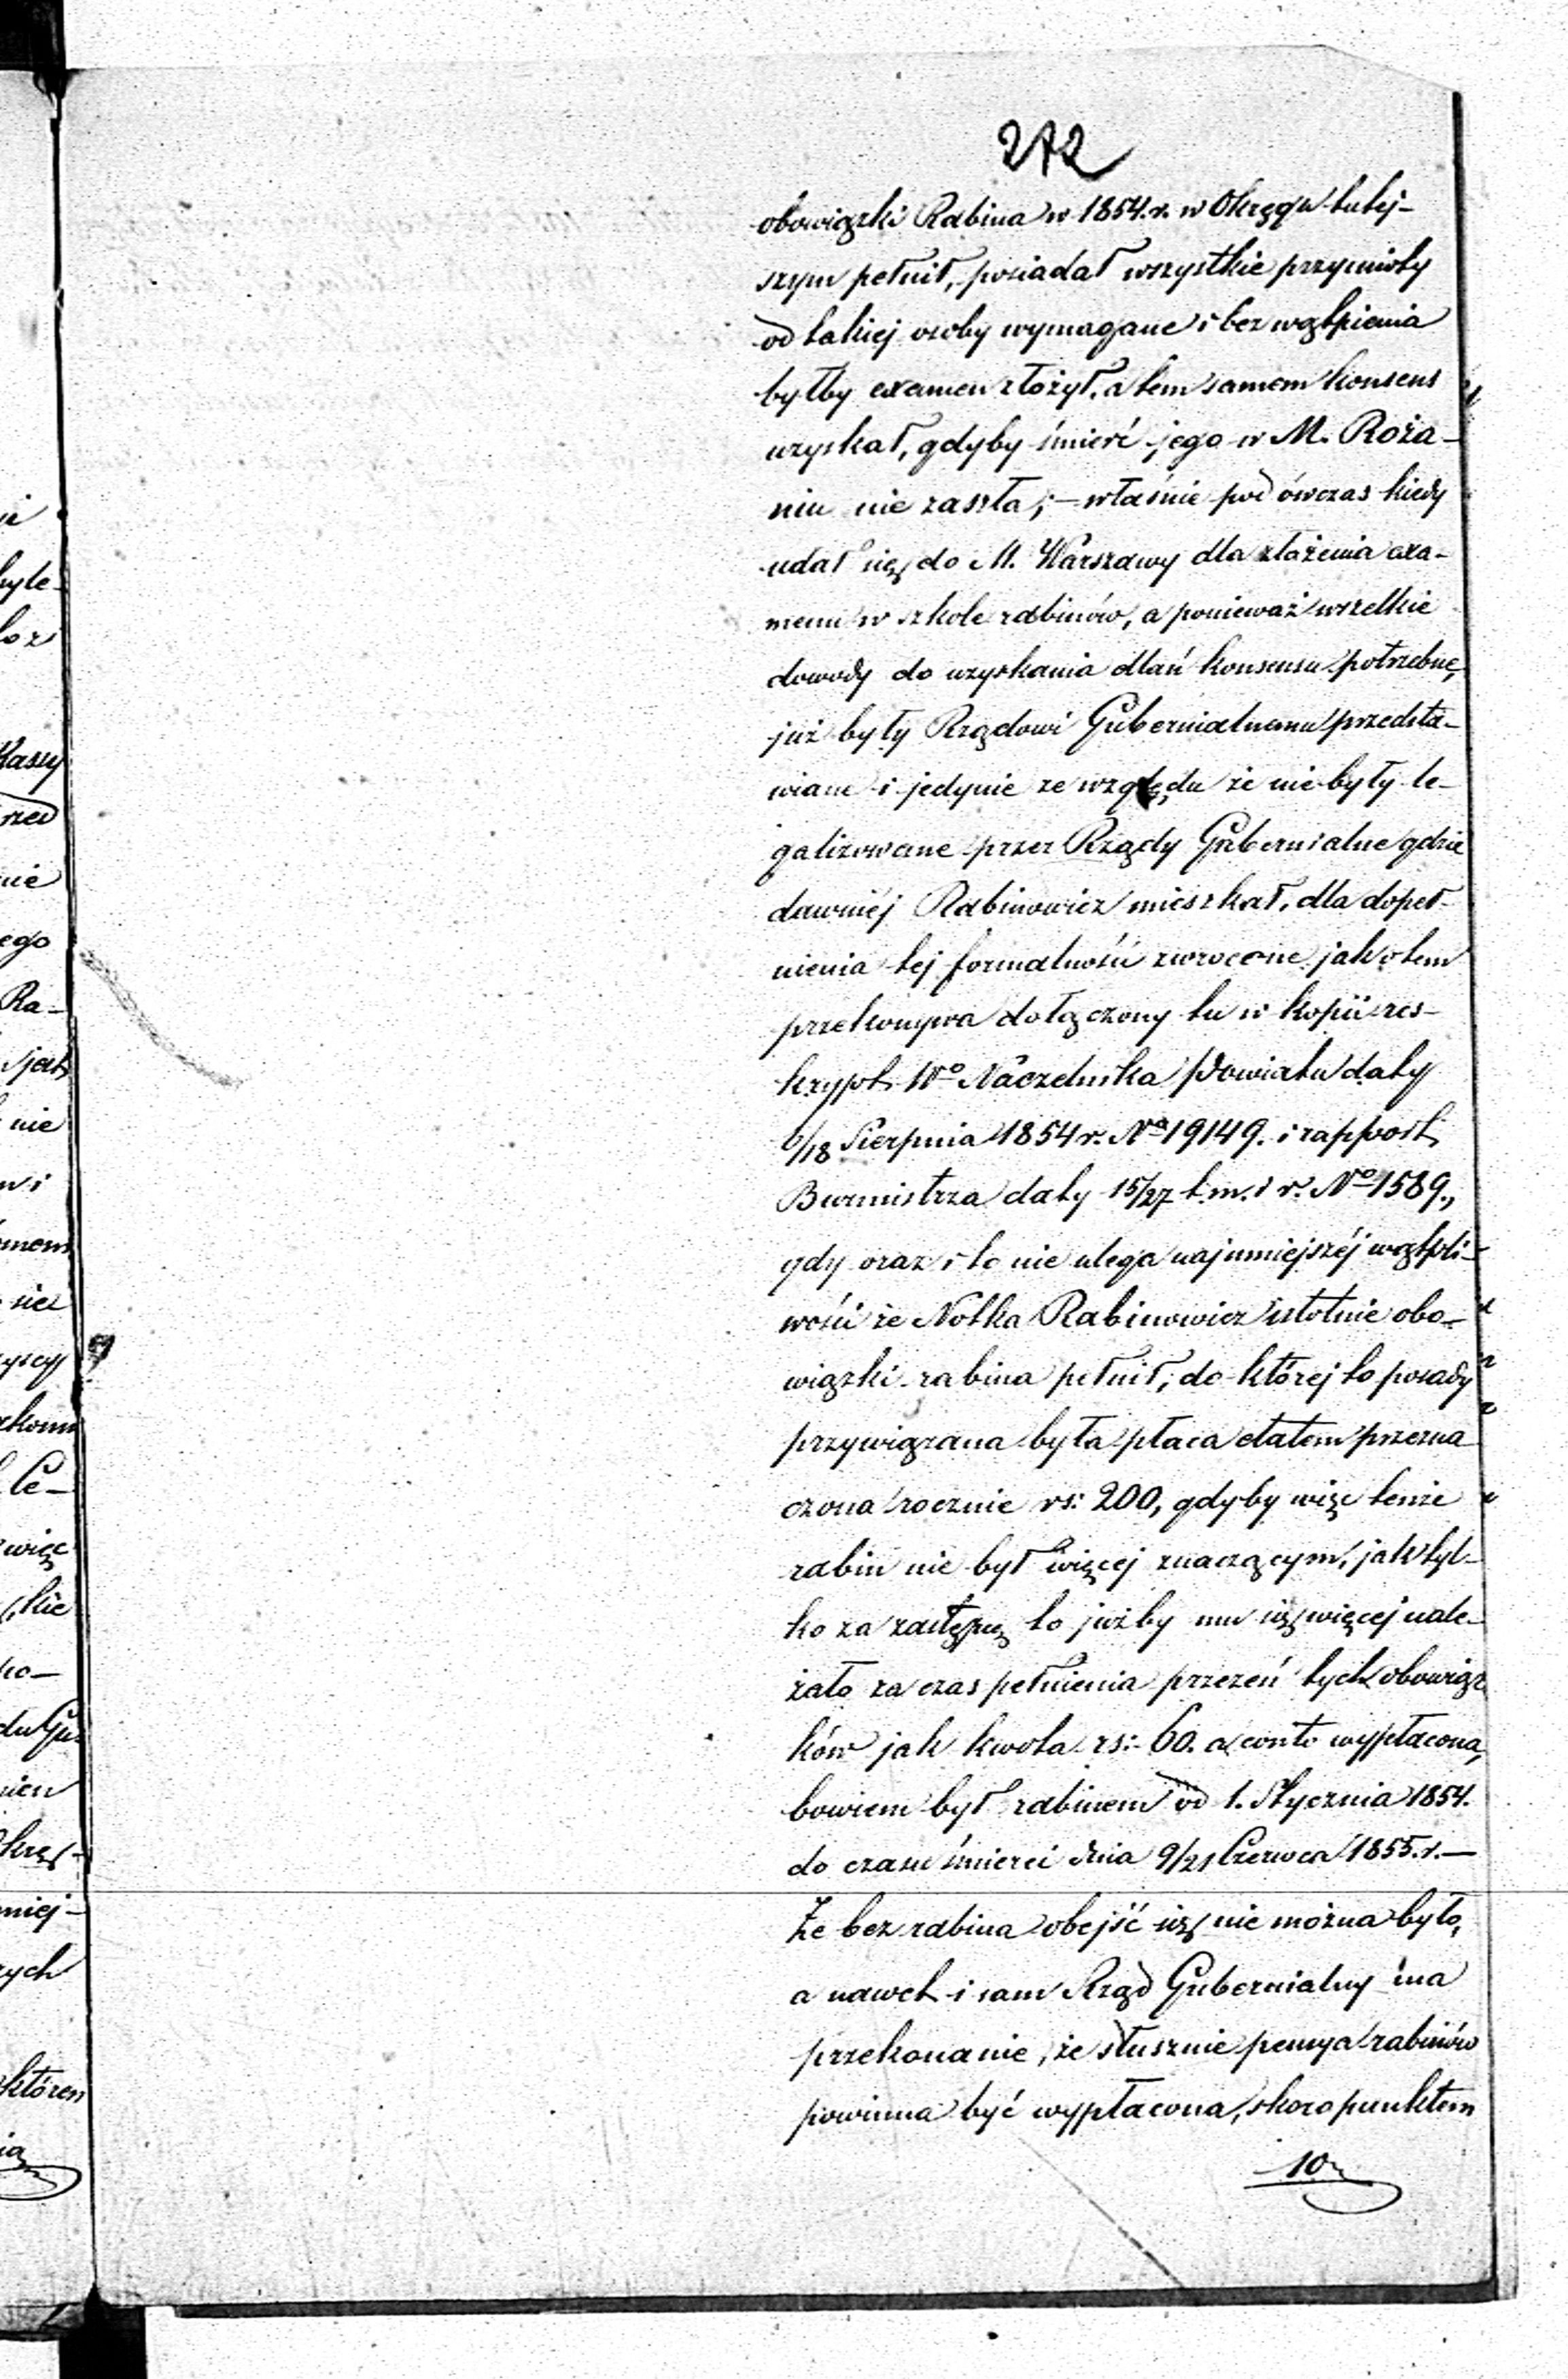 272
obowiązki Rabina w 1854. r. w Okręgu tutej-
szym pełnił, posiadał wszystkie przymioty
od takiej osoby wymagane i bez wątpienia
byłby examen złożył, a tem samem konsens
uzyskał, gdyby śmierć jego w M. Roża-
niu nie zaszła; — właśnie pod ówczas kiedy
udał się do M. Warszawy dla złożenia exa-
menu w szkole rabinów, a ponieważ wszelkie
dowody do uzyskania dlań konsensu potrzebne,
już były Rządowi Gubernialnemu przedsta-
wiane i jedynie ze względu że nie były le-
galizowane przez Rządy Gubernialne gdzie
dawniéj Rabinowicz mieszkał, dla dopeł-
nienia tej formalności zwrócone jak o tem
przekonywa dołączony tu w kopii res-
krypt Wo Naczelnika Powiatu daty
6/18 Sierpnia 1854 r. No 19149. i rapport
Burmistrza daty 15/27 t. m. i r. No 1589.,
gdy oraz i to nie ulega najmniejszéj wątpli-
wości że Notka Rabinowicz istotnie obo-
wiązki rabina pełnił, do której to posady
przywiązana była płaca etatem przezna
czona rocznie rs: 200, gdyby więc tenże
rabin nie był więcej znaczącym, jak tyl-
ko za zastępcę to już by mu się więcej nale-
żało za czas pełnienia przezeń tych obowiąz
ków jak kwota rs: 60. a conto wypłacona,
bowiem był rabinem od 1. Stycznia 1854.
do czasu śmierci dnia 9/21 Czerwca 1855. r. —
Że bez rabina obejść się nie można było,
a nawet i sam Rząd Gubernialny ma
przekonanie, że słusznie pensya rabinów
powinna być wypłacona, skoro punktem
10